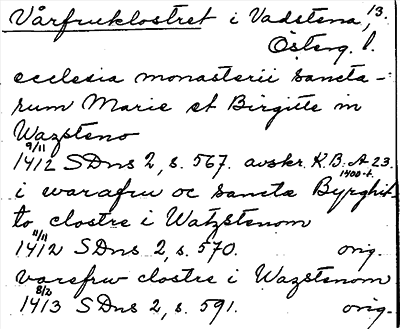 Vårfruklostret i Vadstena, 13.
Österg. l.
ecclesia monasterii sancta-
rum Marie et Birgitte in
Wazsteno
9/11
1412 SDns 2, s. 567. avskr. K.B. A 23.
1400-t.
i warafru oc sancta Byrghit-
to clostre i Watzstenom
11/11
1412 SDns 2, s. 570. orig.
varefrw clostre i Wazstenom
8/2
1413 SDns 2, s. 591. orig.